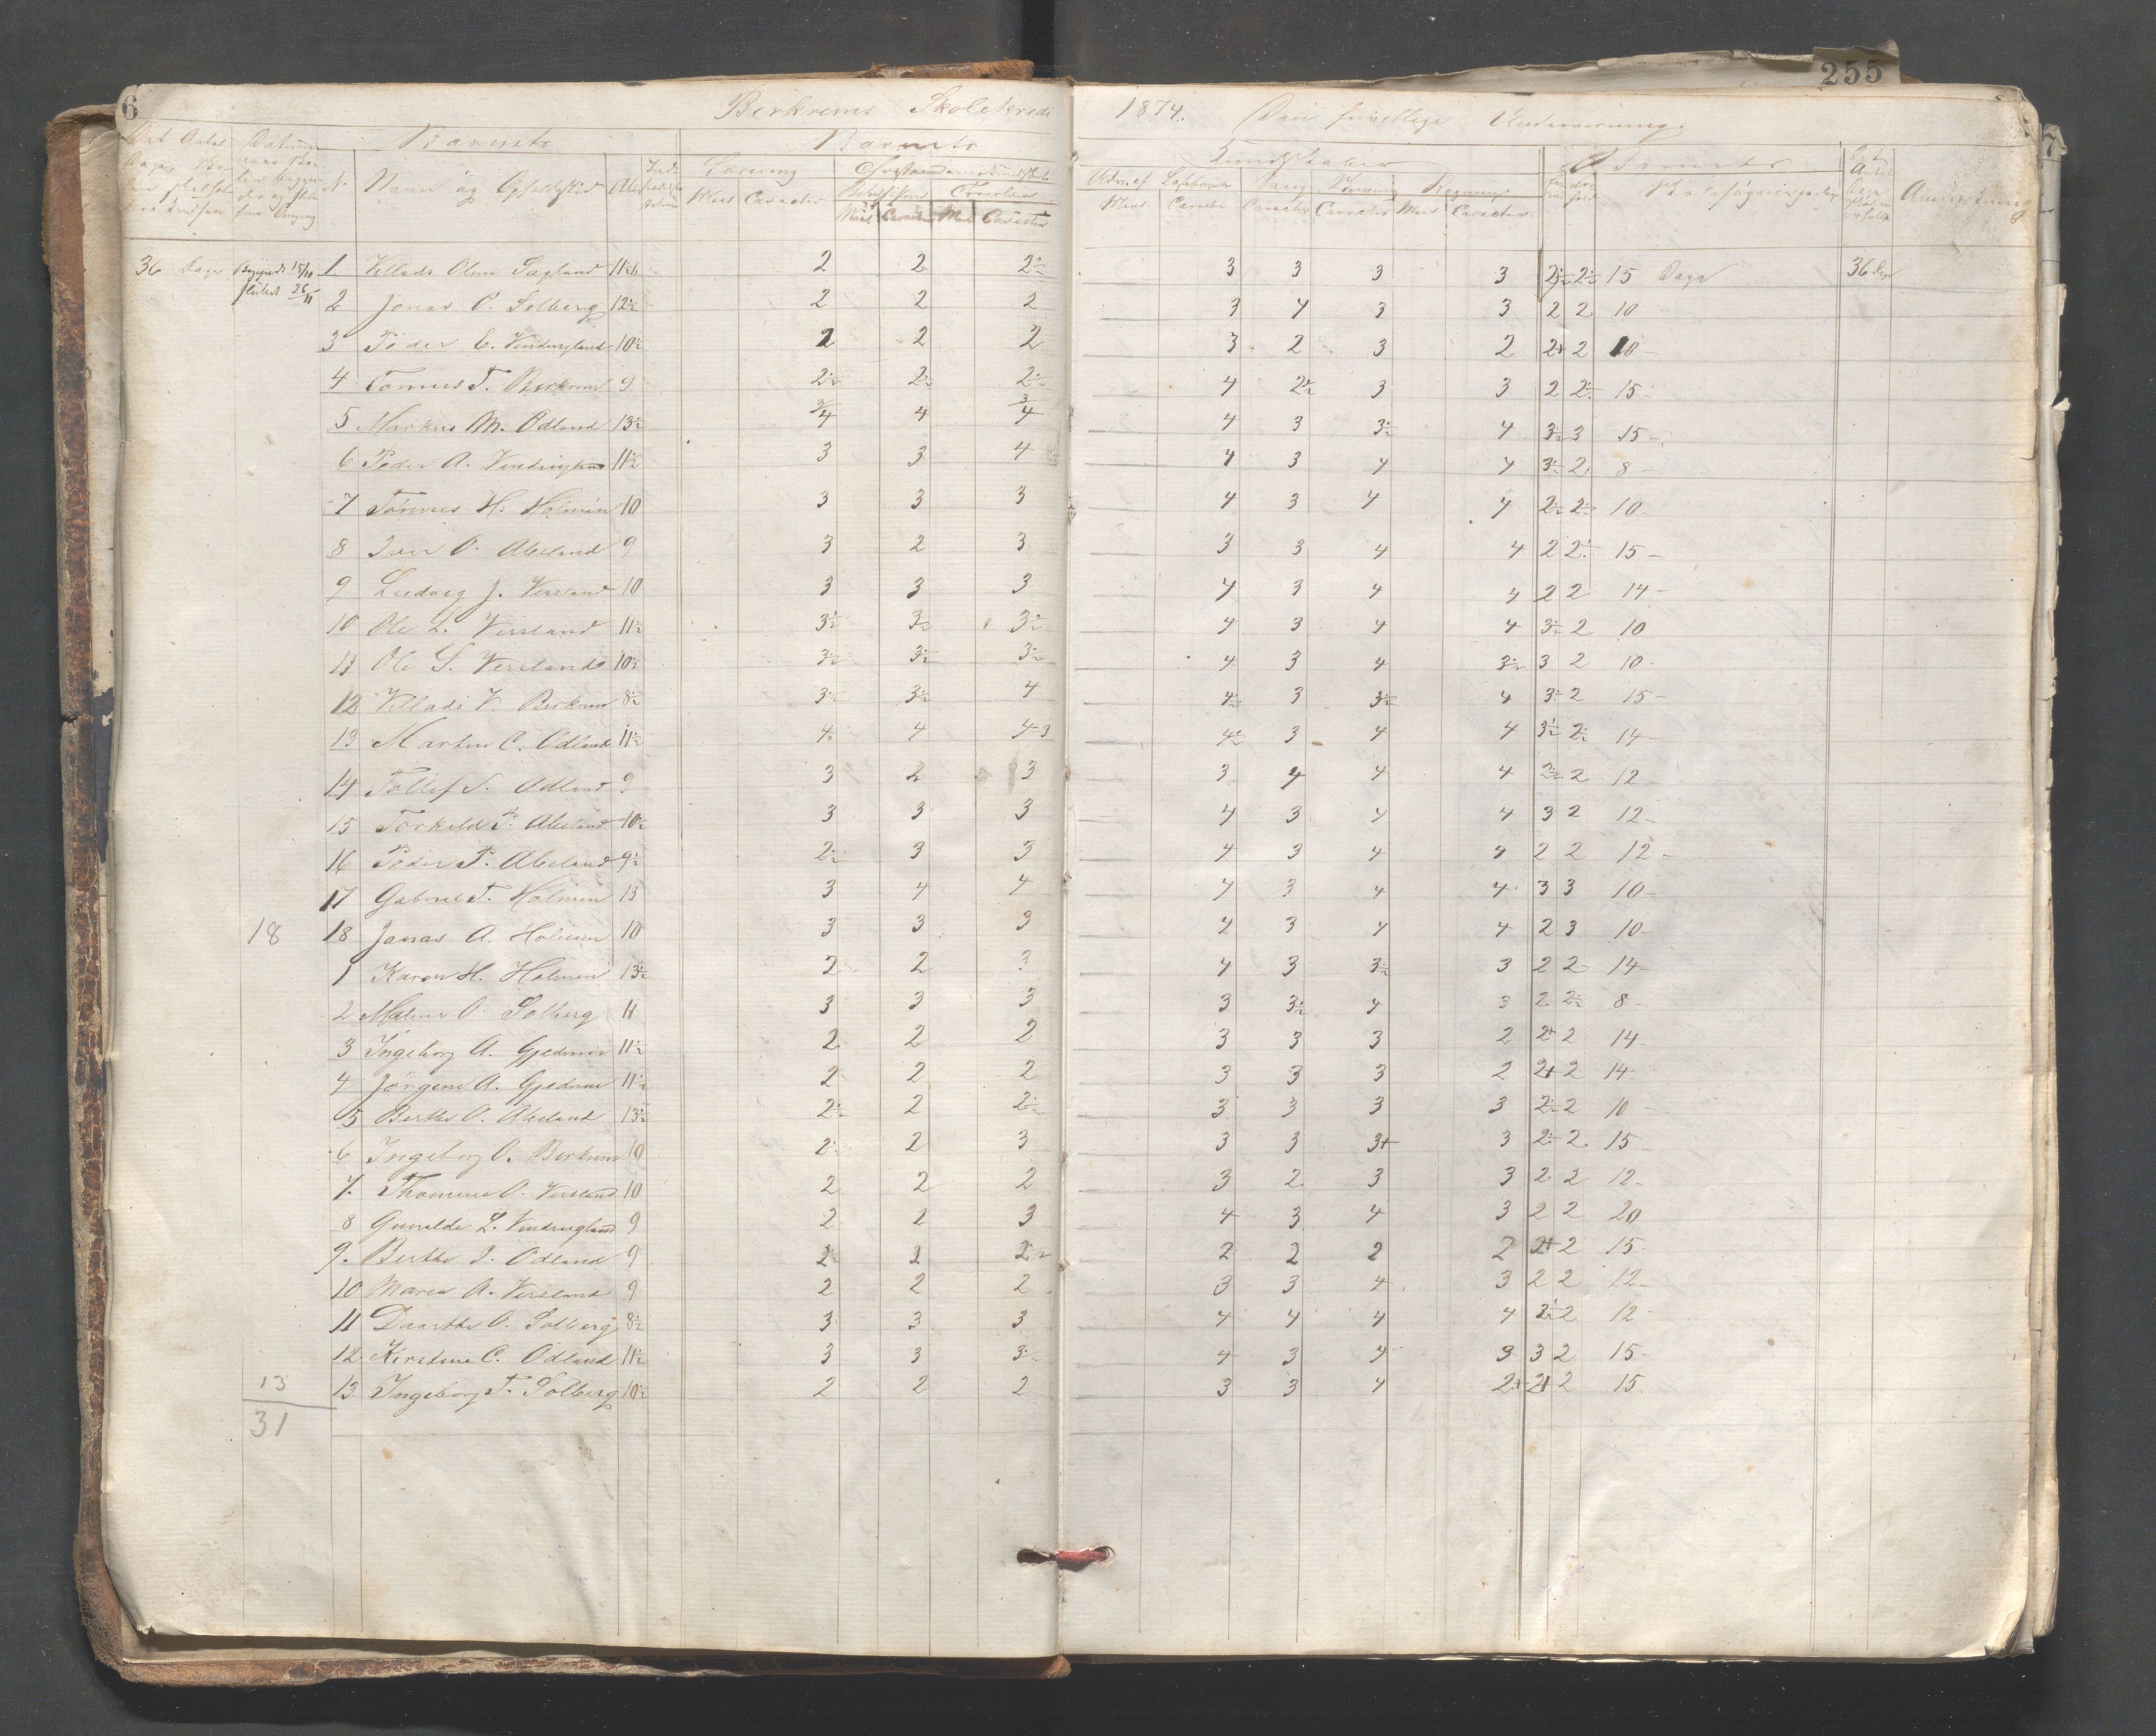 6
255
Birkrems Skolekreds 1874. Den frivillige Undervisning.
Barnets Barnets Kundskaber Barnets
No Navn og Opholdssted Alder Læsning Christendomskundskab
Maal Caracter Maal Caracter Maal Caracter Maal Caracter Caracter Caracter Maal Caracter
36 Dage Begyndt 15/10 1 Villads Olsen Sagland 11½ 2 2 2½ 3 3 3 3 2½ 2½ 15 Dage 36 Dage
sluttet 26/11 2 Jonas O. Solberg 12½ 2 2 2 3 4 3 3 2 2 10
3 Peder E. Vindingland 10½ 2 2 2 3 2 3 2 2+ 2 10
4 Tønnes T. Birkrem 9 2½ 2½ 2½ 4 2½ 3 3 2 2½ 15
5 Markus M. Ødland 13½ 3/4 4 3/4 4 3 3½ 4 3½ 3 15
6 Peder A. Vindingland 11½ 3 3 4 4 3 4 4 3½ 2 8
7 Tönnes H. Holmen 10 3 3 3 4 3 4 4 2½ 2½ 10
8 Iver O. Aleland 9 3 2 3 3 3 4 4 2 2½ 15
9 Ludvig J. Versland 10 3 3 3 4 3 4 4 2 2 14
10 Ole L. Versland 11½ 3½ 3½ 3½ 4 3 4 4 3½ 2 10
11 Ole S. Versland 10½ 3½ 3½ 3½ 4 3 4 3½ 3 2 10
12 Villads V. Birkrem 8½ 3½ 3½ 4 4½ 3 3½ 4 3½ 2 15
13 Martin C. Ødland 11½ 4 4 4-3 4½ 3 4 4 3½ 2½ 14
14 Tollef S. Ødland 9 3 2 3 3 4 4 4 2½ 2 12
15 Torkild P. Aleland 10½ 3 3 3 4 3 4 4 3 2 12
16 Peder P. Aleland 9½ 2½ 3 3 4 3 4 4 2 2 12
17 Gabriel T. Holmen 13 3 4 4 4 3 4 4 3 3 10
18 18 Jonas A. Holmen 10 3 3 3 4 3 4 4 2 3 10
1 Karen H. Holmen 13½ 2 2 3 4 3 3½ 3 2 2 14
2 Malene O. Solberg 11 3 3 3 3 3½ 4 3 2 2½ 8
3 Ingeborg A. Gjedrem 11½ 2 2 2 3 3 3 2 2+ 2 14
4 Jörgine A. Gjedrem 11½ 2 2 2 3 3 3 2 2+ 2 14
5 Berthe O. Aleland 13½ 2½ 2 2½ 3 3 3 3 2½ 2 10
6 Ingeborg O. Birkrem 10 2½ 2 3 3 3 3+ 3 2½ 2 15
7. Thomine O. Versland 10 2 2 2 3 2 3 3 2 2 12
8 Gunilde L. Vindingland 9 2 2 3 4 3 4 3 2 2 20
9. Berthe I. Ødland 9 2½ 2 2½ 2 2 2 2 2+ 2 15
10 Maren A. Versland 9 2 2 2 3 3 4 3 2 2 12
11 Daarthe O. Solberg 8½ 3 3 3 4 4 4 4 2½ 2 12
12 Kirstine C. Ødland 11½ 3 3 3½ 4 3 4 3 3 2 15
13 13. Ingeborg T. Solberg 10½ 2 2 2 3 3 4 2+ 2+ 2 15
31